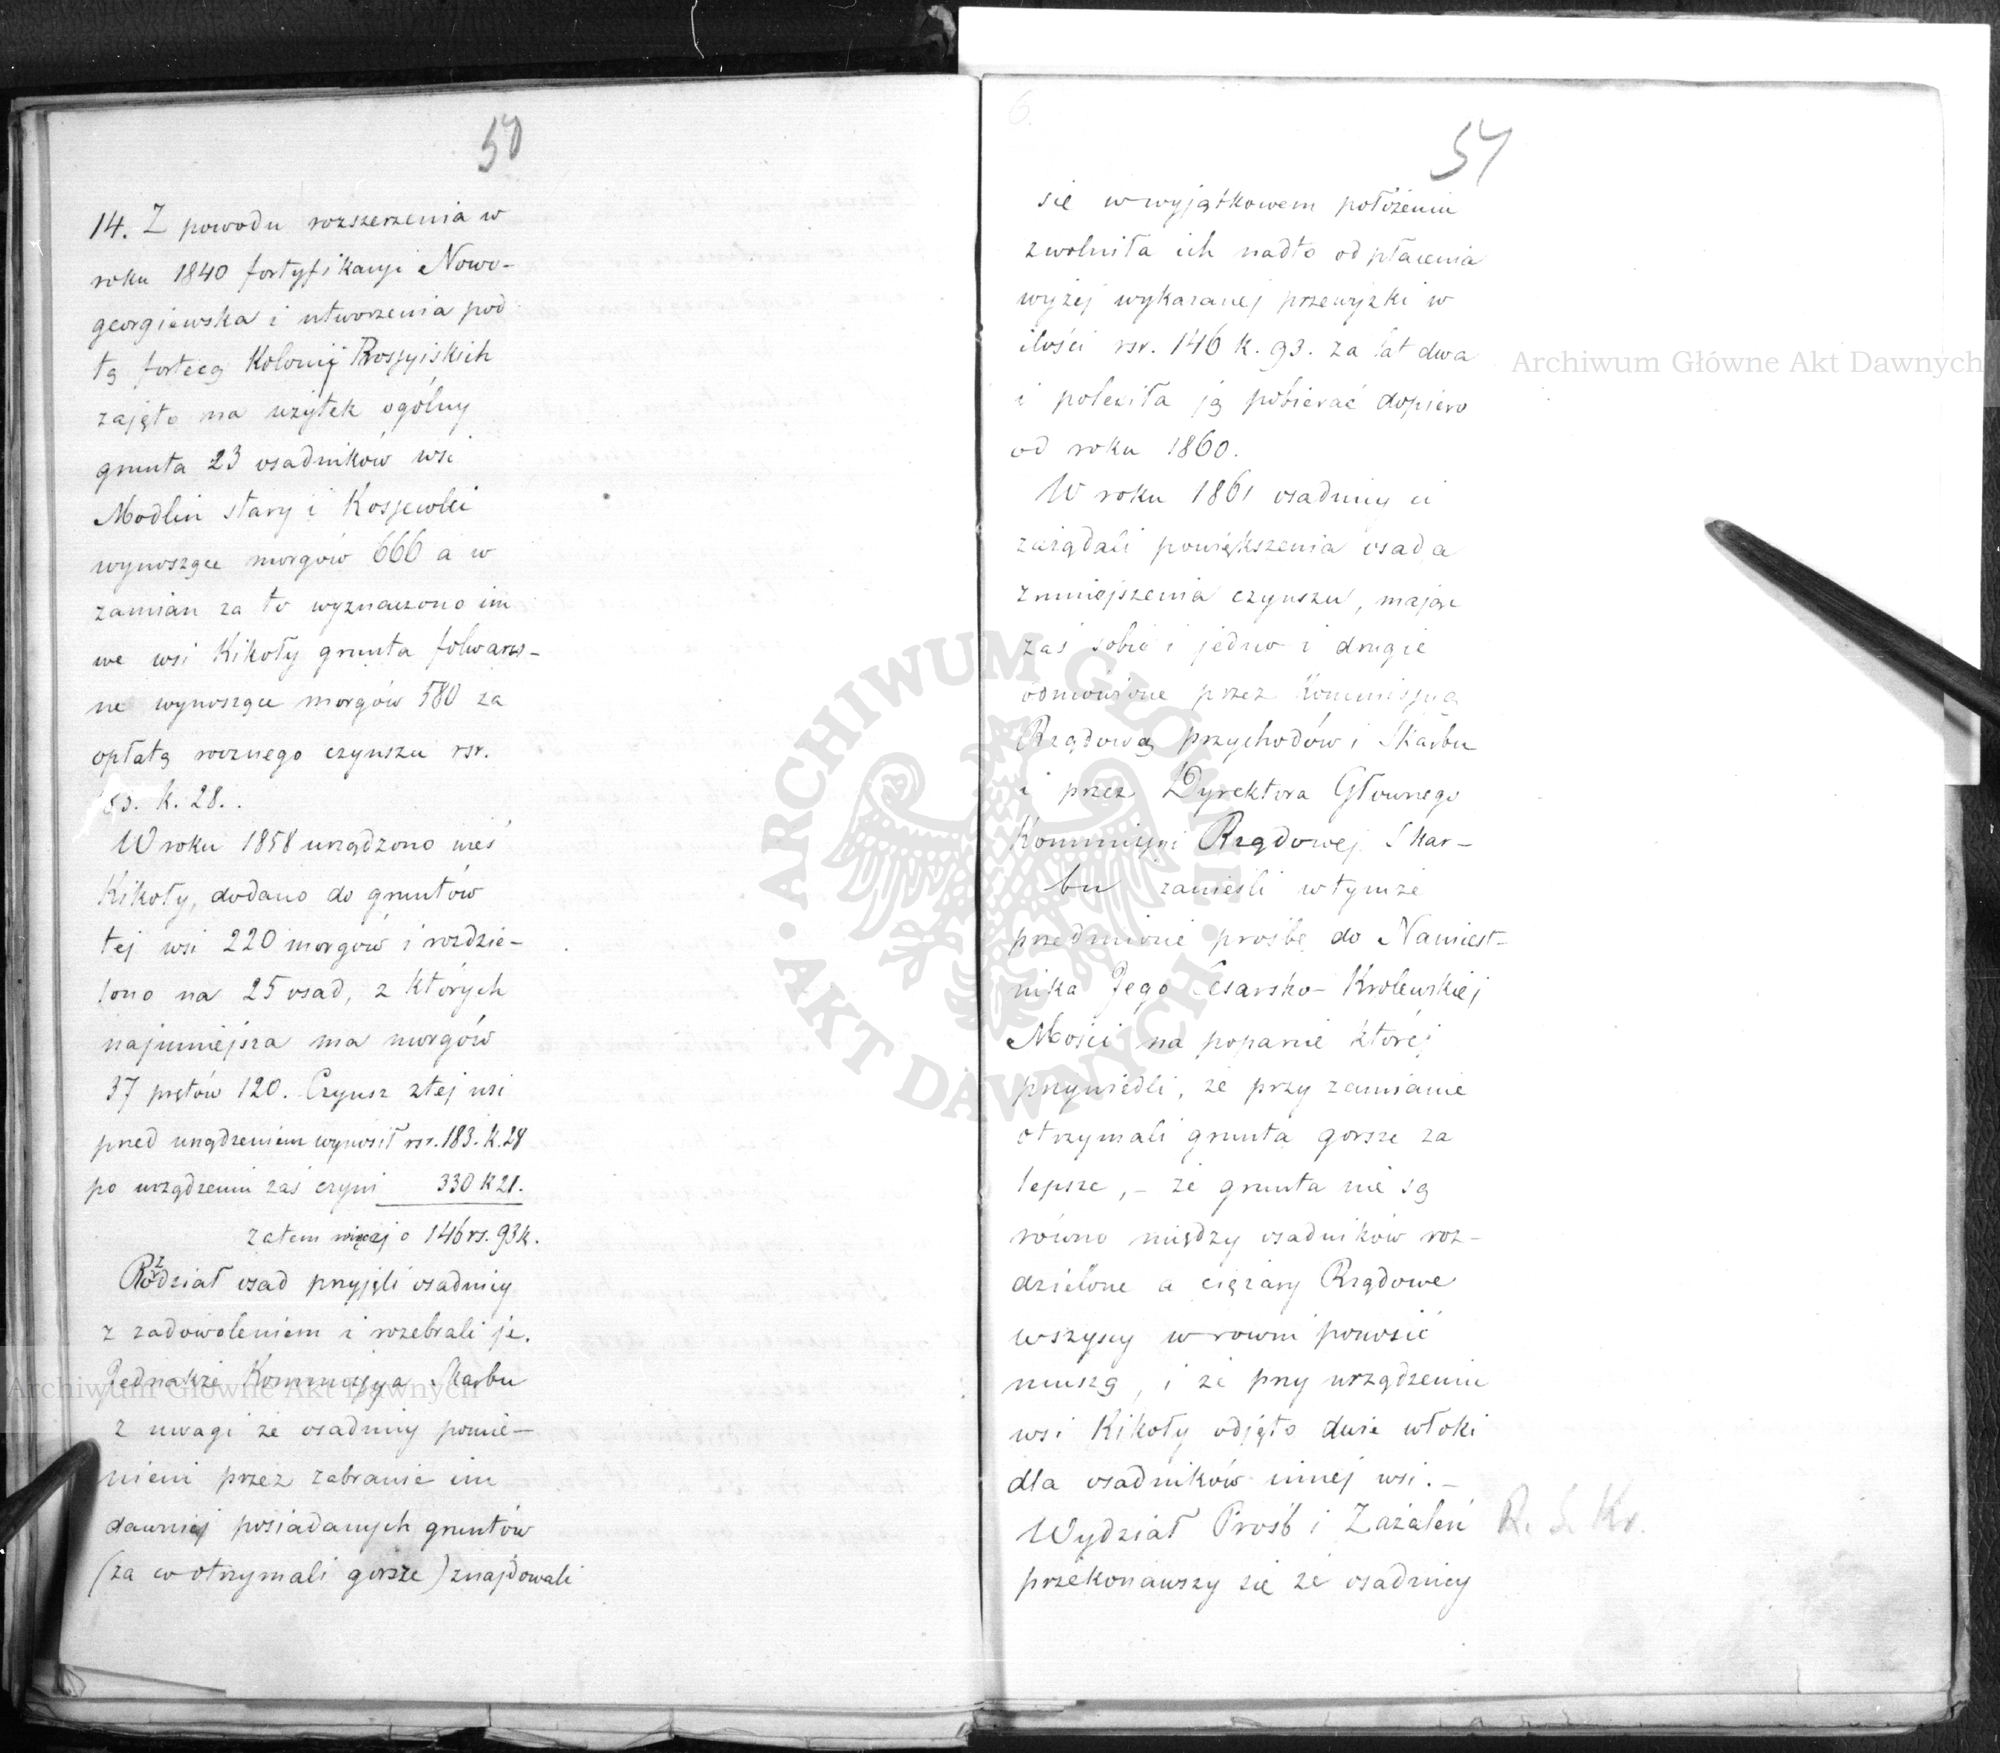 50
14. Z powodu rozszerzenia w
roku 1840 fortyfikacyi Nowo-
georgiewska i utworzenia pod
tą fortecą Kolonij Rossyiskich
zajęto na użytek ogólny
grunta 23 osadników wsi
Modlin stary i Kosjewki
wynoszące morgów 666 a w
zamian za to wyznaczono im
we wsi Kikoły grunta folwarcz-
ne wynoszące morgów 580 za
opłatą rocznego czynszu rsr.
k. 28.
W roku 1858 urządzono wieś
Kikoły, dodano do gruntów
tej wsi 220 morgów i rozdzie-
lono na 25 osad, z których
najmniejsza ma morgów
37 prętów 120. Czynsz z tej wsi
przed urządzeniem wynosił rsr. 183. k. 28
po urządzeniu zaś czyni 330 k 21.
zatem więcej o 146 rs. 93 k.
Rozdział osad przyjęli osadnicy
z zadowoleniem i rozebrali je.
Jednakże Kommissyja Skarbu
z uwagi że osadnicy pomie-
nieni przez zabranie im
dawniej posiadanych gruntów
(za co otrzymali gorsze) znajdowali
51
się w wyjątkowem położeniu
zwolniła ich nadto od płacenia
wyżej wykazanej przewyżki w
ilości rsr. 146 k. 93. za lat dwa
i poleciła ją pobierać dopiero
od roku 1860.
W roku 1861 osadnicy ci
zażądali powiększenia osad a
zmniejszenia czynszu, mając
zaś sobie i jedno i drugie
odmówione przez Kommissyją
Rządową przychodów i Skarbu
i przez Dyrektora Głownego
Kommissyi Rządowej Skar-
bu zanieśli w tymże
przedmiocie prośbę do Namiest-
nika Jego Cesarsko-Krolewskiej
Mości na poparcie której
przywiedli, że przy zamianie
otrzymali grunta gorsze za
lepsze, - że grunta nie są
równo między osadników roz-
dzielone a ciężary Rządowe
wszyscy w rowni ponosić
muszą, i że przy urządzeniu
wsi Kikoły odjęto dwie włoki
dla osadników innej wsi. -
Wydział Prośb i Zażaleń R. S. Kr.
przekonawszy się że osadnicy
Archiwum Główne Akt Dawnych
Archiwum Główne Akt Dawnych
ARCHIWUM GŁÓWNE • AKT DAWNYCH •